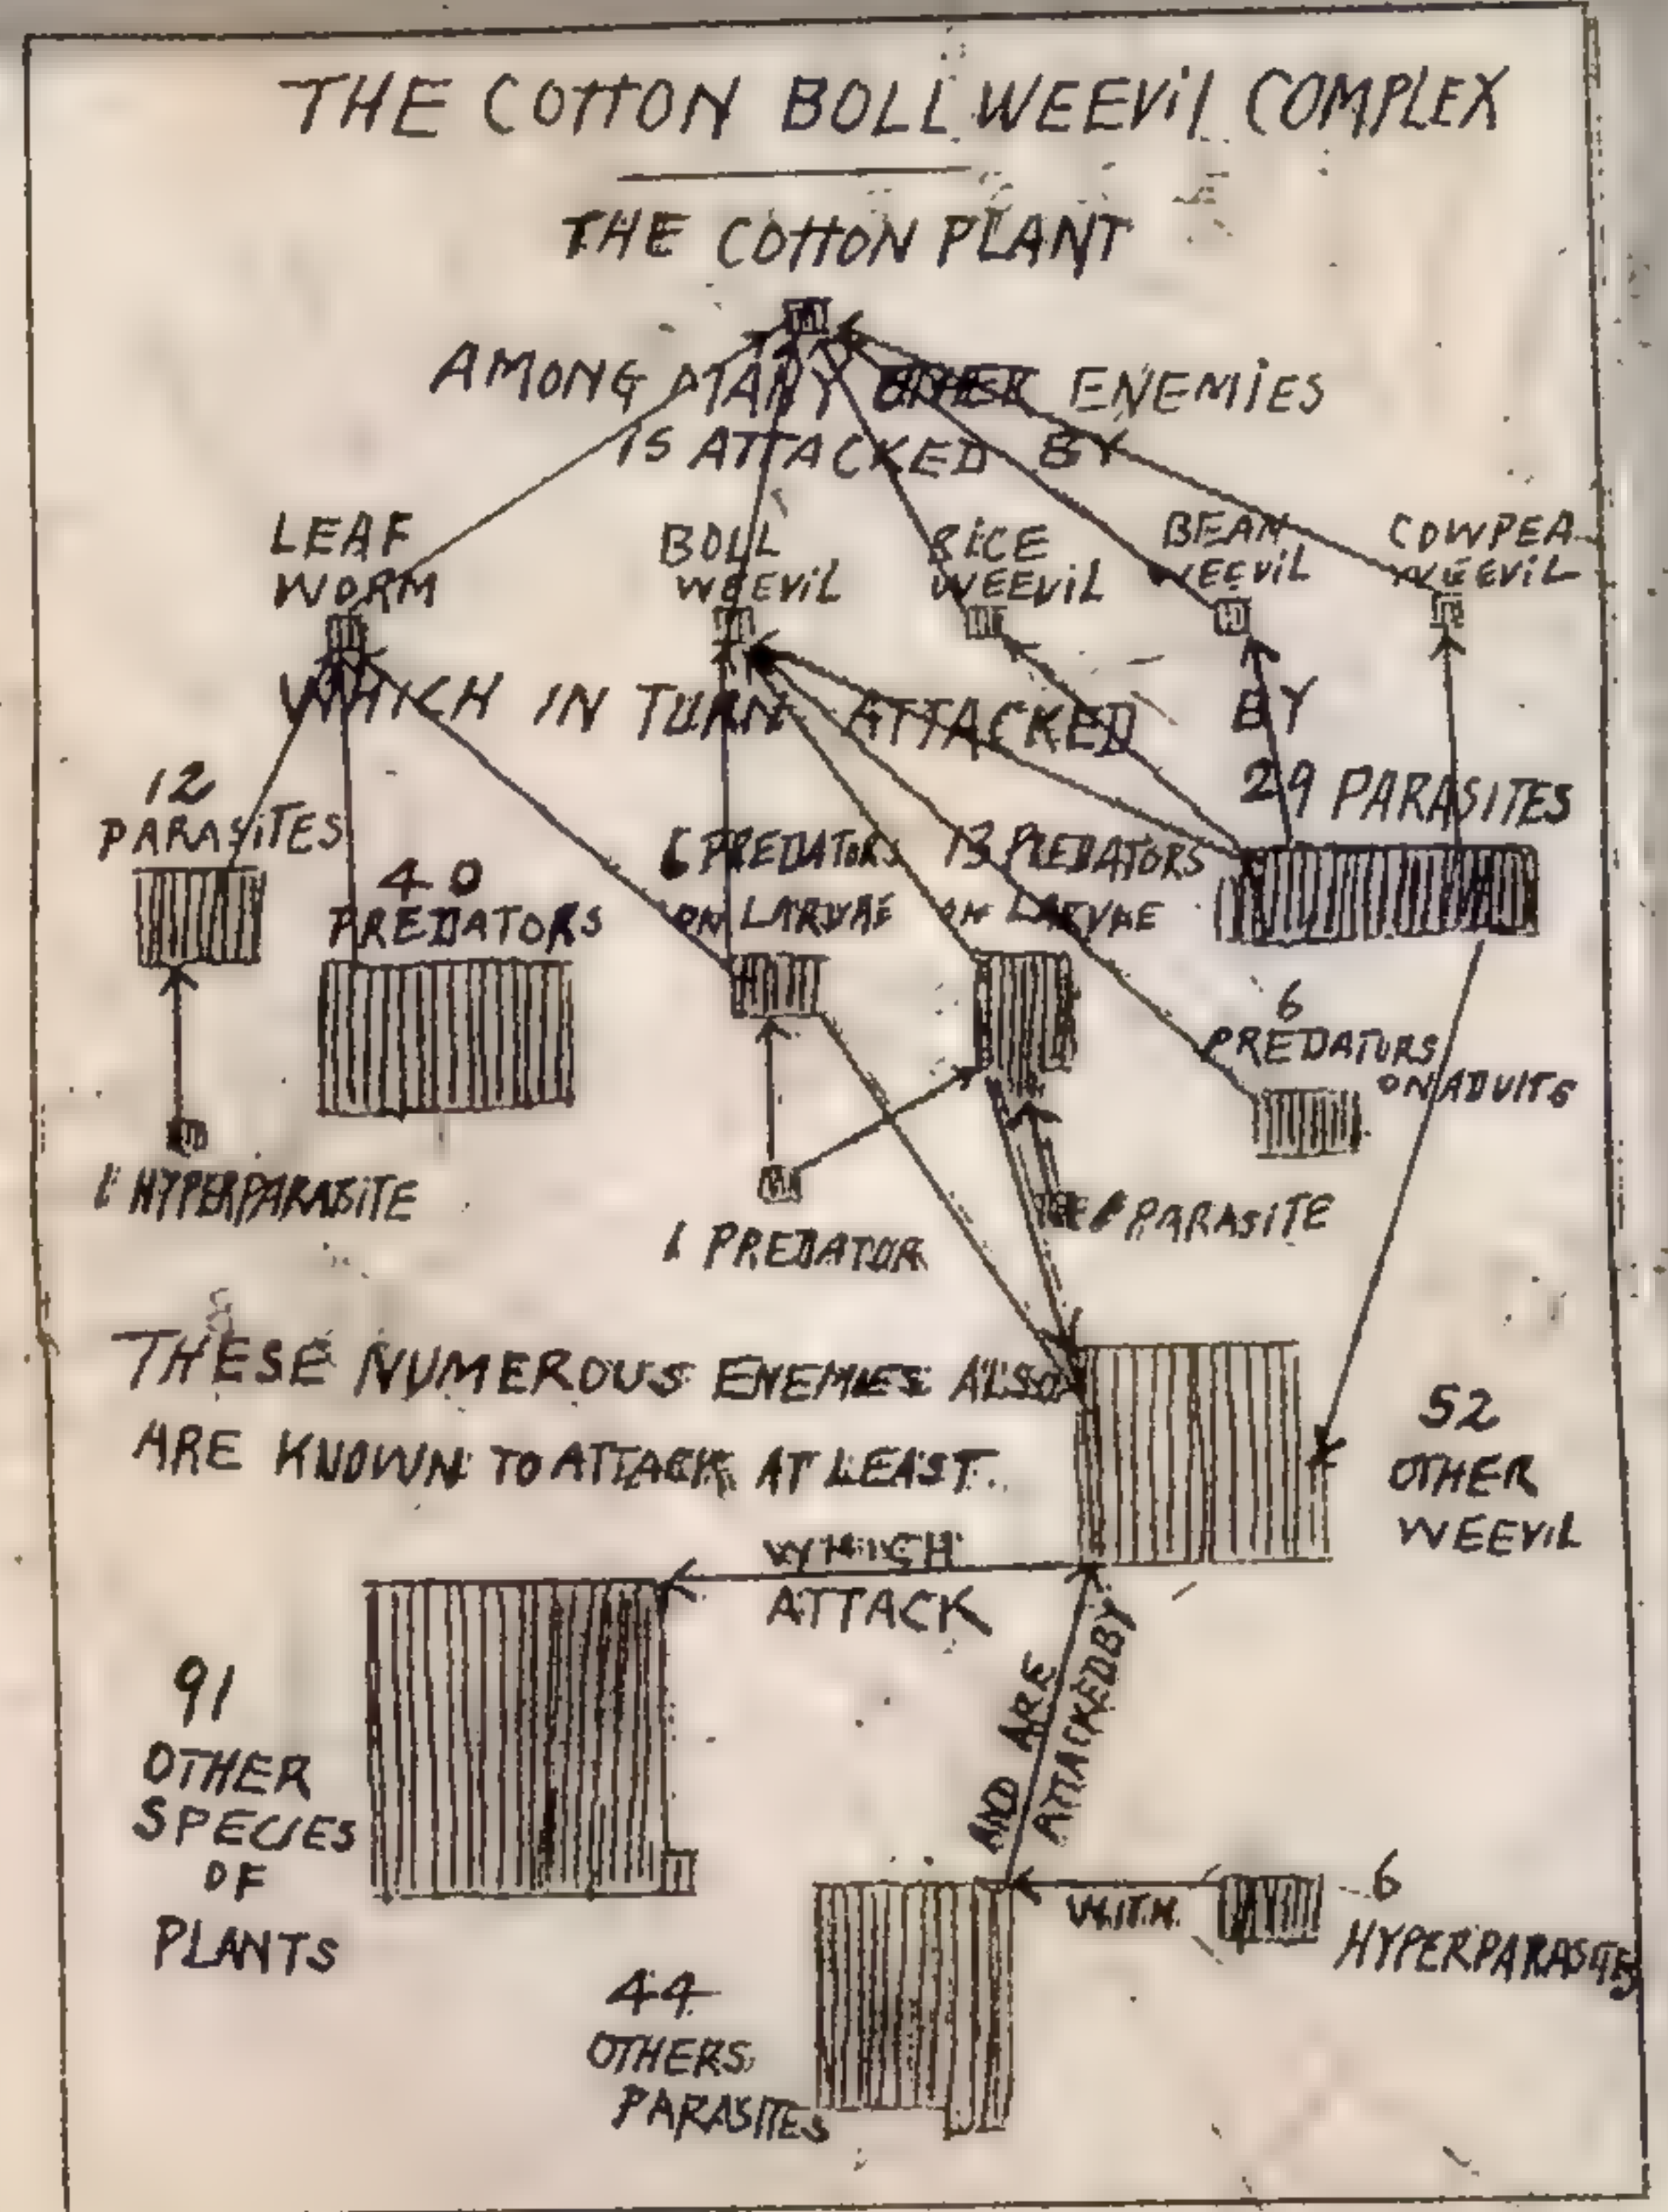 THE COTTON BOLL WEEVIL COMPLEX
THE COTTON PLANT
AMONG MANY OTHER ENEMIES
IS ATTACKED BY
LEAF
WORM
BOLL
WEEVIL
RICE
WEEVIL
BEAN
WEEVIL
COWPEA
WEEVIL
WHICH IN TURN ATTACKED BY
12
PARASITES
40
PREDATORS
6 PREDATORS
ON LARVAE
13 PREDATORS
ON LARVAE
29 PARASITES
6
PREDATORS
ON ADULTS
1 HYPERPARASITE
1 PREDATOR
PARASITE
THESE NUMEROUS ENEMIES ALSO
ARE KNOWN TO ATTACK AT LEAST.
52
OTHER
WEEVIL
WHICH
ATTACK
91
OTHER
SPECIES
OF
PLANTS
AND ARE
ATTACKED BY
WITH
6
HYPERPARASITES
44
OTHERS
PARASITES